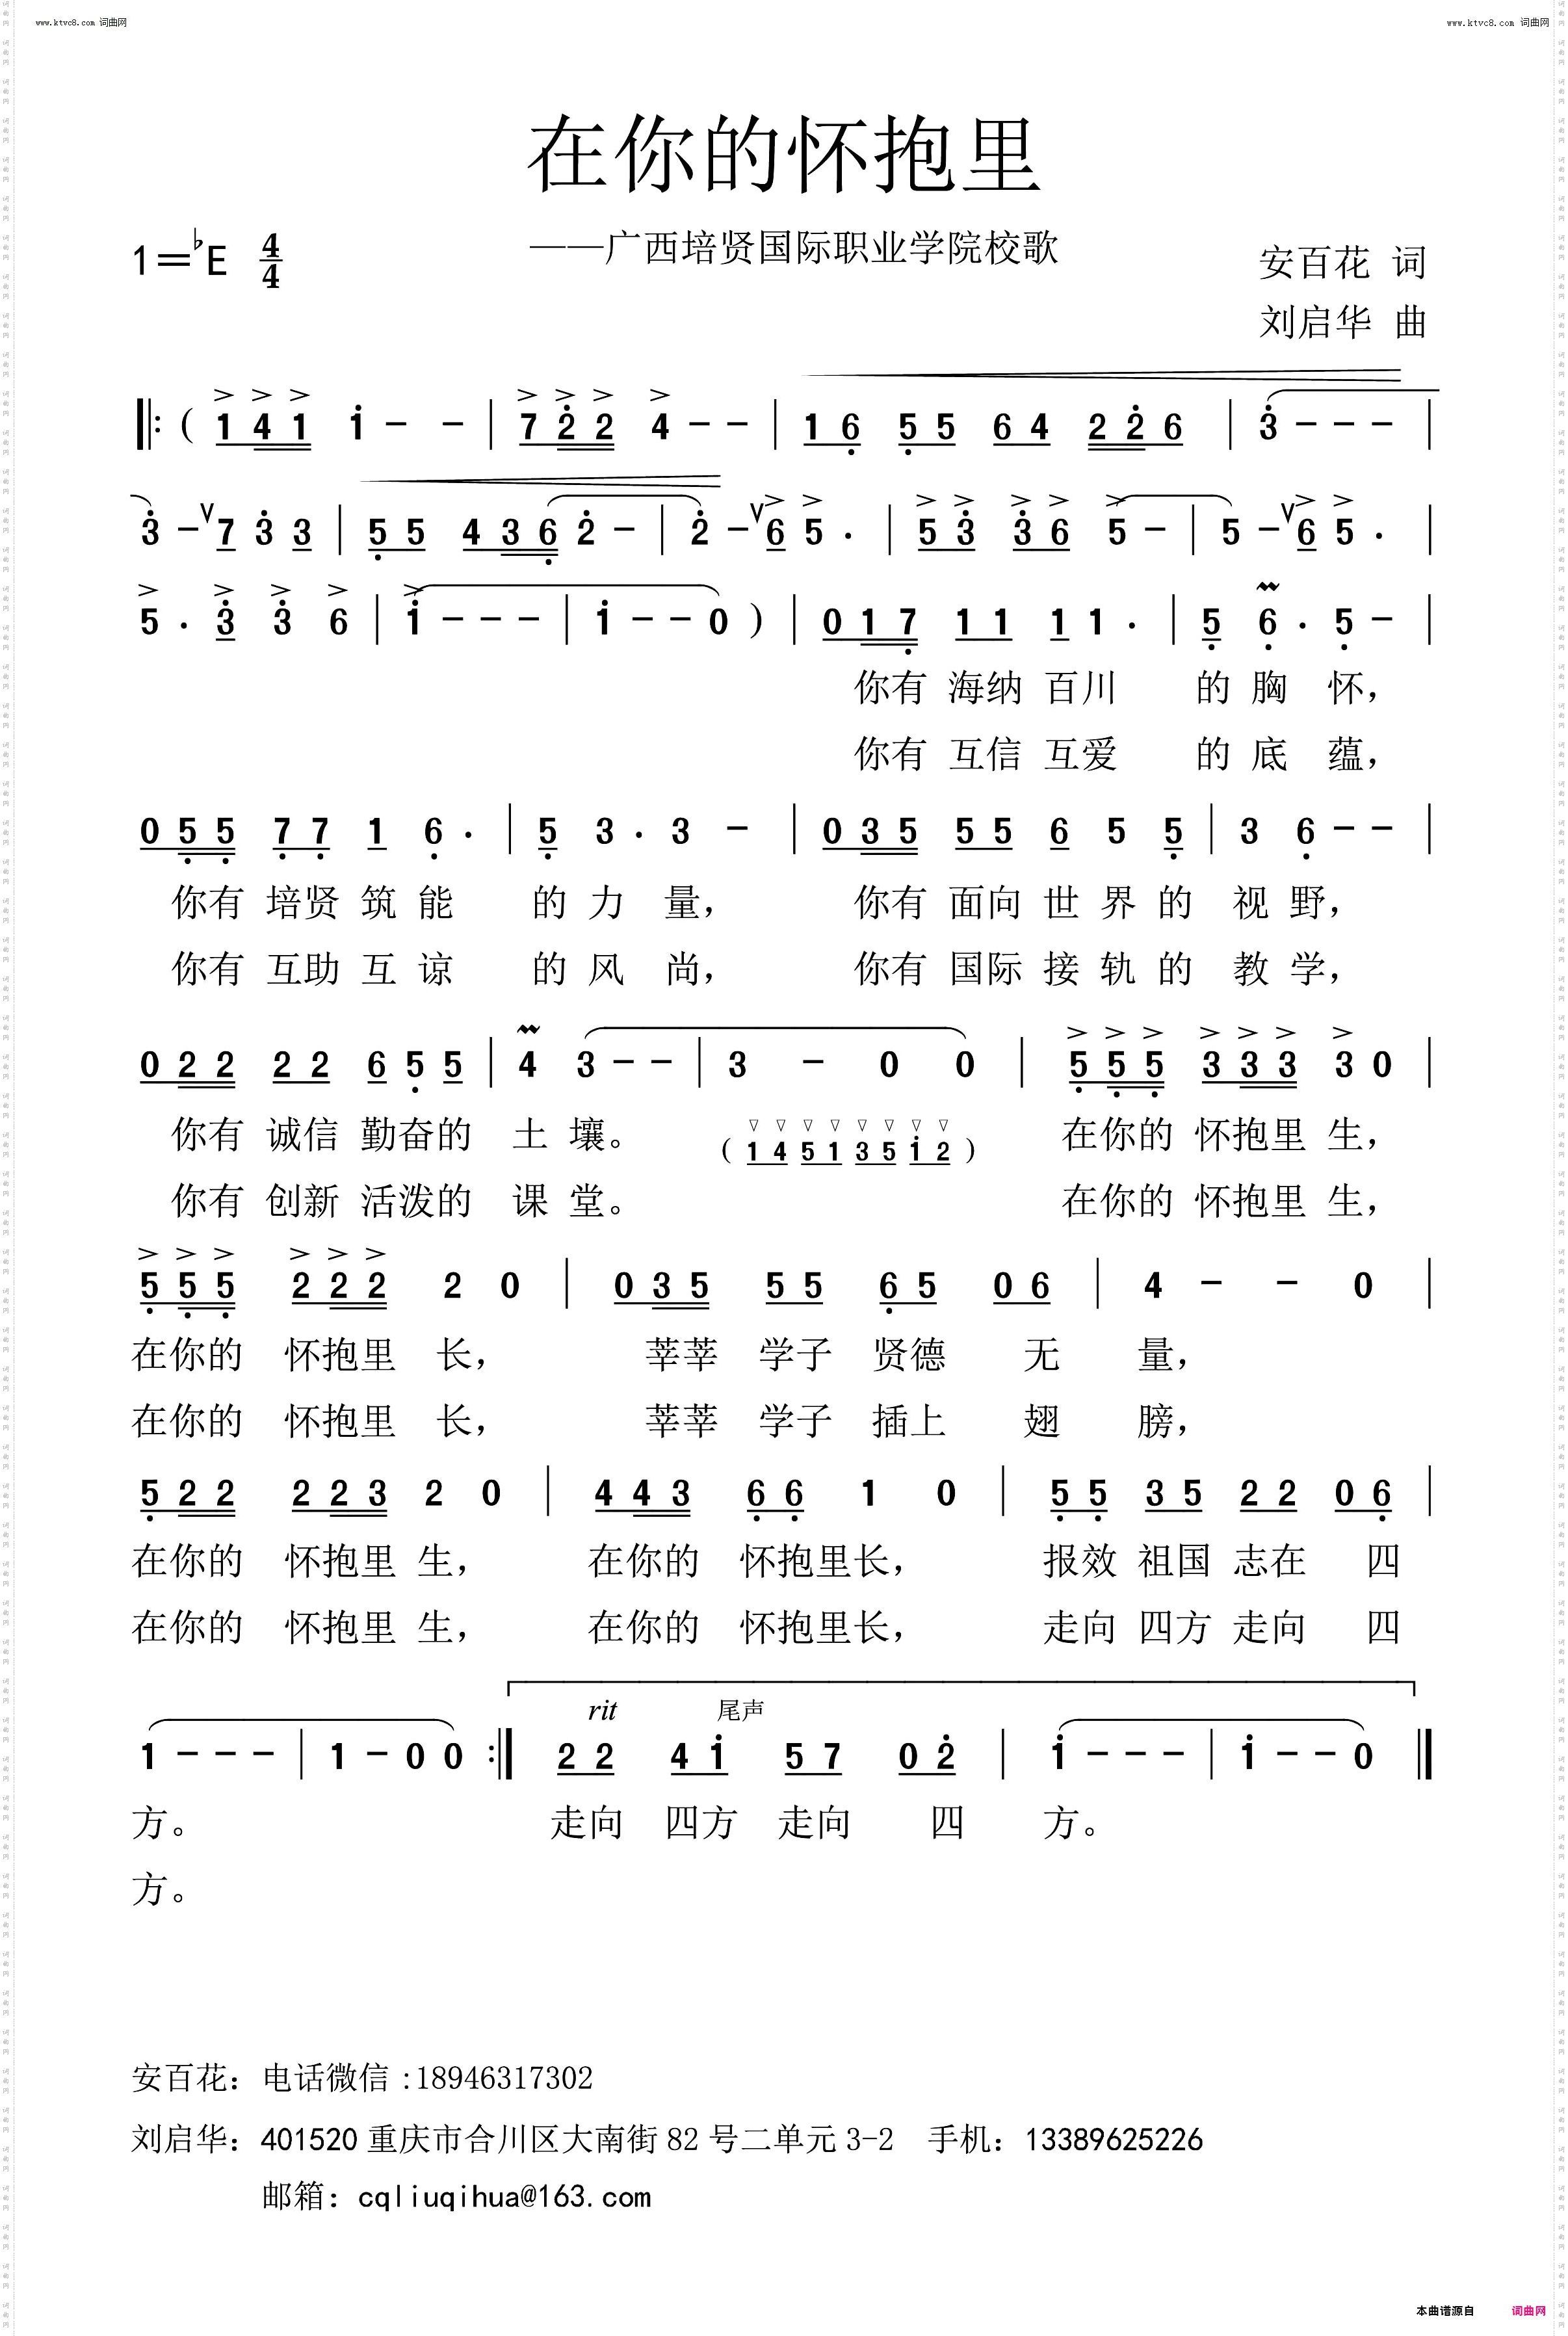 www.ktvc8.com 词曲网
www.ktvc8.com 词曲网
在你的怀抱里
——广西培贤国际职业学院校歌
1=♭E 4/4
安百花 词
刘启华 曲
( 1 4 1 1 - - | 7 2 2 4 - - | 1 6 5 5 6 4 2 2 6 | 3 - - - |
3 - V 7 3 3 | 5 5 4 3 6 2 - | 2 - V 6 5 . | 5 3 3 6 5 - | 5 - V 6 5 . |
5 . 3 3 6 | 1 - - - | 1 - - 0 ) | 0 1 7 1 1 1 1 . | 5 6 . 5 - |
你有 海纳 百川 的 胸 怀，
你有 互信 互爱 的 底 蕴，
0 5 5 7 7 1 6 . | 5 3 . 3 - | 0 3 5 5 5 6 5 5 | 3 6 - - |
你有 培贤 筑 能 的 力 量， 你有 面向 世 界 的 视 野，
你有 互助 互 谅 的 风 尚， 你有 国际 接 轨 的 教 学，
0 2 2 2 2 6 5 5 | 4 3 - - | 3 - 0 0 | 5 5 5 3 3 3 3 0 |
你有 诚信 勤奋的 土 壤。 ( 1 4 5 1 3 5 1 2 ) 在你的 怀抱里 生，
你有 创新 活泼的 课 堂。 在你的 怀抱里 生，
5 5 5 2 2 2 2 0 | 0 3 5 5 5 6 5 0 6 | 4 - - 0 |
在你的 怀抱里 长， 莘莘 学子 贤德 无 量，
在你的 怀抱里 长， 莘莘 学子 插上 翅 膀，
5 2 2 2 2 3 2 0 | 4 4 3 6 6 1 0 | 5 5 3 5 2 2 0 6 |
在你的 怀抱里 生， 在你的 怀抱里长， 报效 祖国 志在 四
在你的 怀抱里 生， 在你的 怀抱里长， 走向 四方 走向 四
rit 尾声
1 - - - | 1 - 0 0 :| 2 2 4 1 5 7 0 2 | 1 - - - | 1 - - 0 ‖
方。 走向 四方 走向 四 方。
方。
安百花：电话微信:18946317302
刘启华：401520重庆市合川区大南街82号二单元3-2 手机：13389625226
邮箱：cqliuqihua@163.com
本曲谱源自 词曲网